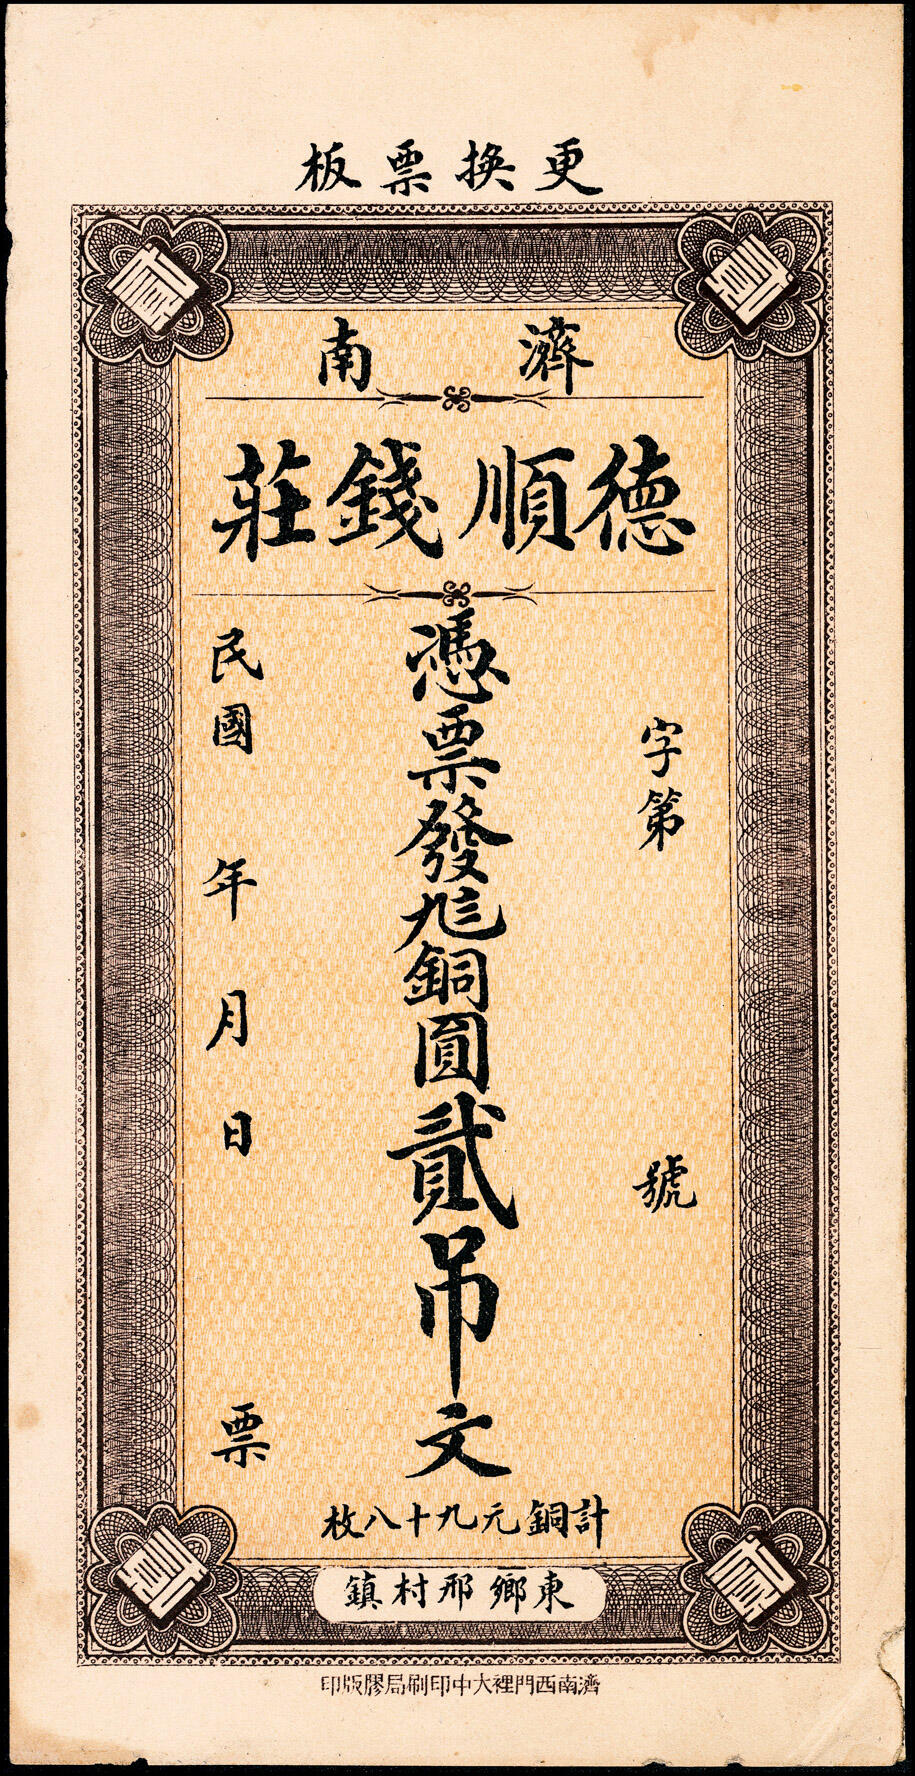 更換票板
濟南
德順錢莊
字第 號
憑票發銅圓貳吊文
民國 年 月 日 票
計銅元九十八枚
東鄉邢村鎮
濟南西門裡大中印刷局膠版印